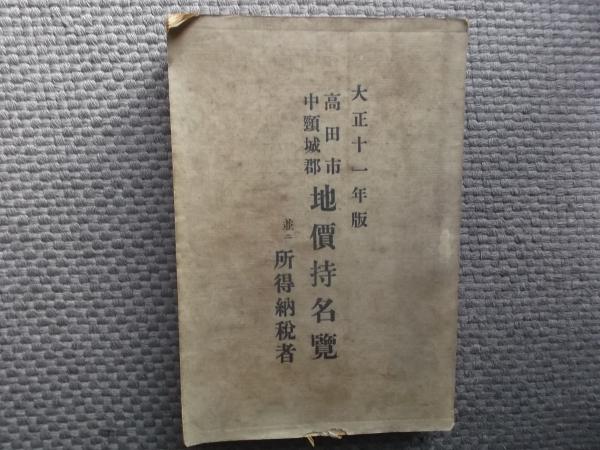 大正十一年版
高田市
中頸城郡
地價持名覽
並ニ
所得納稅者